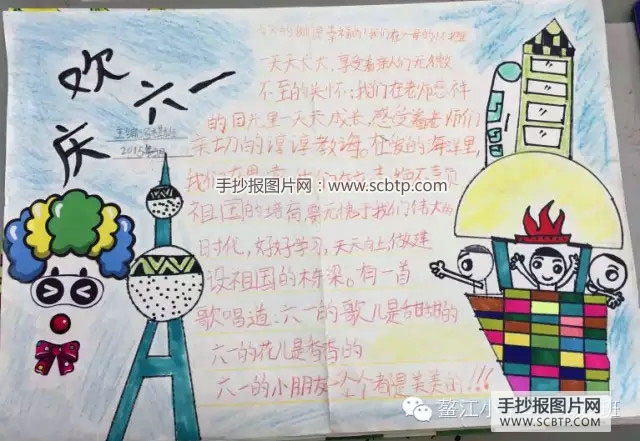 欢庆六一
主编
2015年
一天天长大,享受着亲人们无微
不至的关怀;我们在老师慈祥
的目光里一天天成长,感受着老师们
亲切的谆谆教诲。在爱的海洋里,
我们
手抄报图片网:www.scbtp.com
祖国的培育,要无愧于我们伟大的
时代,好好学习,天天向上做建
设祖国的栋梁。有一首
歌唱道:六一的歌儿是甜甜的
六一的花儿是香香的
六一的小朋友一个个都是美美的!!!
鳌江小
班
手抄报图片网
www.scbtp.com